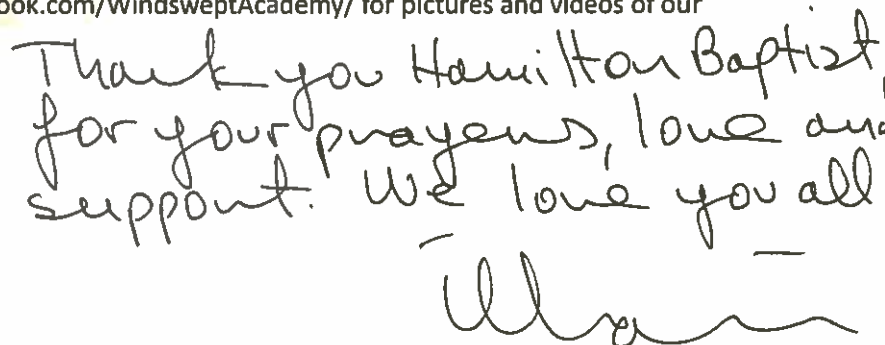 ook.com/WindsweptAcademy/ for pictures and videos of our
Thank you Hamilton Baptist
for your prayers, love and
support. We love you all